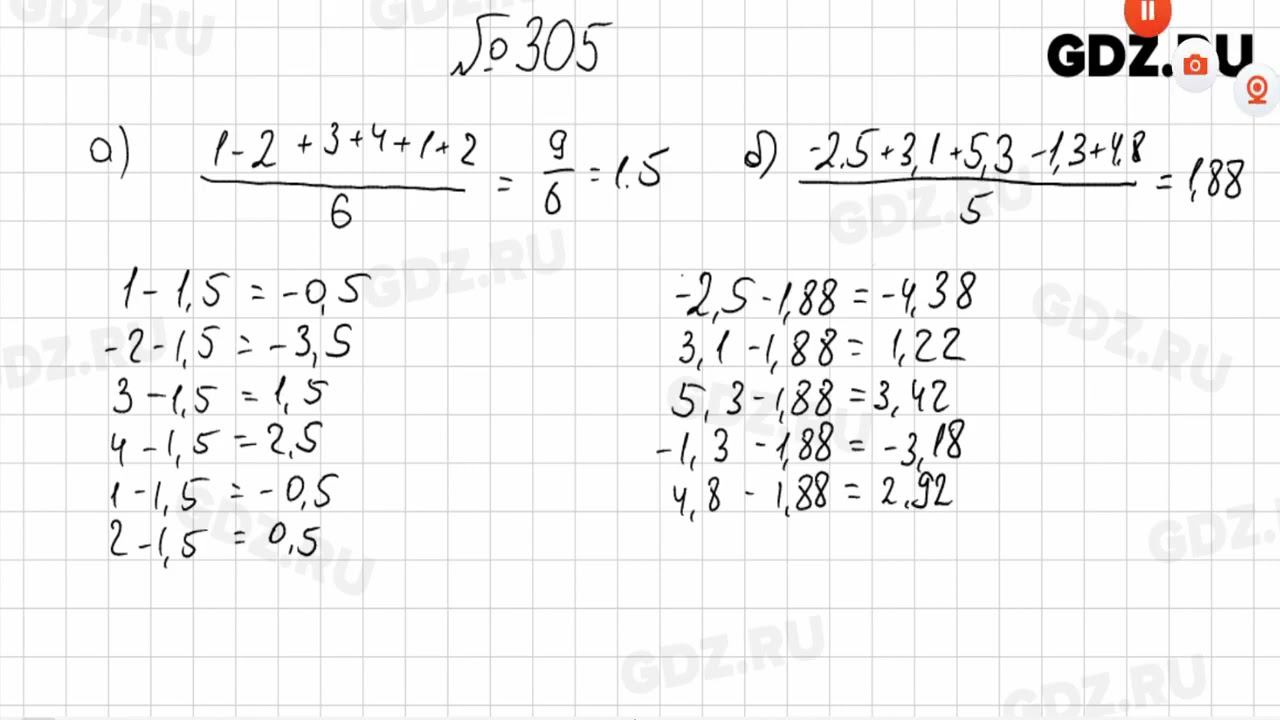 № 305
GDZ.RU
а) (1 - 2 + 3 + 4 + 1 + 2)/6 = 9/6 = 1.5
б) (-2,5 + 3,1 + 5,3 - 1,3 + 4,8)/5 = 1,88
1 - 1,5 = -0,5
-2 - 1,5 = -3,5
3 - 1,5 = 1,5
4 - 1,5 = 2,5
1 - 1,5 = -0,5
2 - 1,5 = 0,5
-2,5 - 1,88 = -4,38
3,1 - 1,88 = 1,22
5,3 - 1,88 = 3,42
-1,3 - 1,88 = -3,18
4,8 - 1,88 = 2.92
GDZ.RU
GDZ.RU
GDZ.RU
GDZ.RU
GDZ.RU
GDZ.RU
GDZ.RU
GDZ.RU
GDZ.RU
GDZ.RU
GDZ.RU